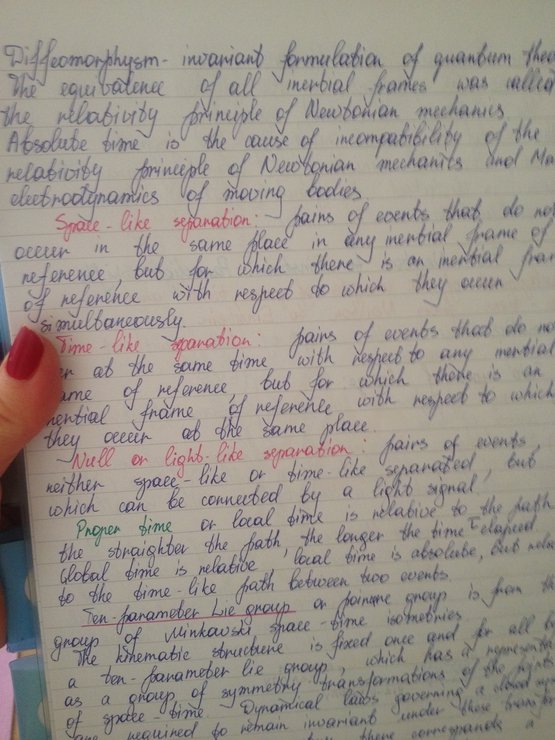 Diffeomorphysm - invariant formulation of quantum
The equivalence of all inertial frames was called
the relativity principle of Newtonian mechanics
Absolute time is the cause of incompatibility of the
relativity principle of Newtonian mechanics and
electrodynamics of moving bodies
Space-like separation: pairs of events that do not
occur in the same place in any inertial frame of
reference, but for which there is an inertial
of reference with respect to which they occur
simultaneously.
Time-like sparation: pairs of events that do
at the same time with respect to any inertial
of reference, but for which there is an
frame of reference with respect to which
they occur at the same place.
Null or light-like separation: pairs of events,
neither space-like or time-like separated, but
which can be connected by a light signal,
Proper time or local time is relative to the path
the straighter the path, the longer the time elapsed.
Global time is relative, local time is absolute, but
to the time-like path between two events.
Ten-parameter Lie group or group is from the
group of Minkowski space-time isometries
The kinematic structure is fixed once and for all
a ten-parameter lie group, which has a
as a group of symmetry transformations of the
of space-time. Dynamical laws governing a closed
are required to remain invariant under these
there corresponds a